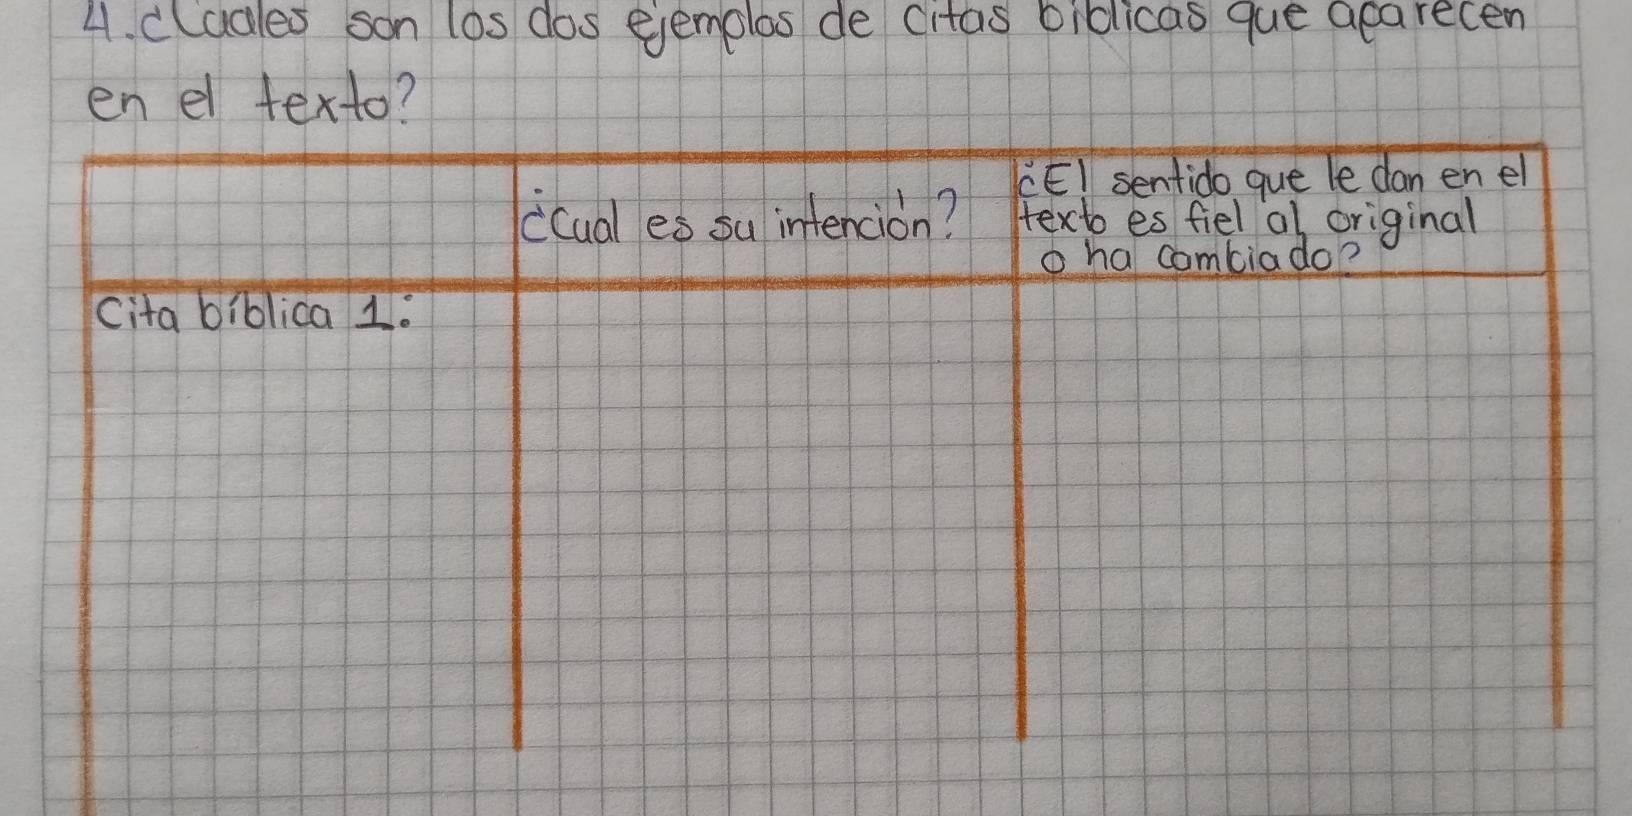 4. ¿Cuales son los dos ejemplos de citas biblicas que aparecen
en el texto?
¿Cual es su intención?
¿El sentido que le dan en el
texto es fiel al original
o ha cambiado?
Cita bíblica 1: